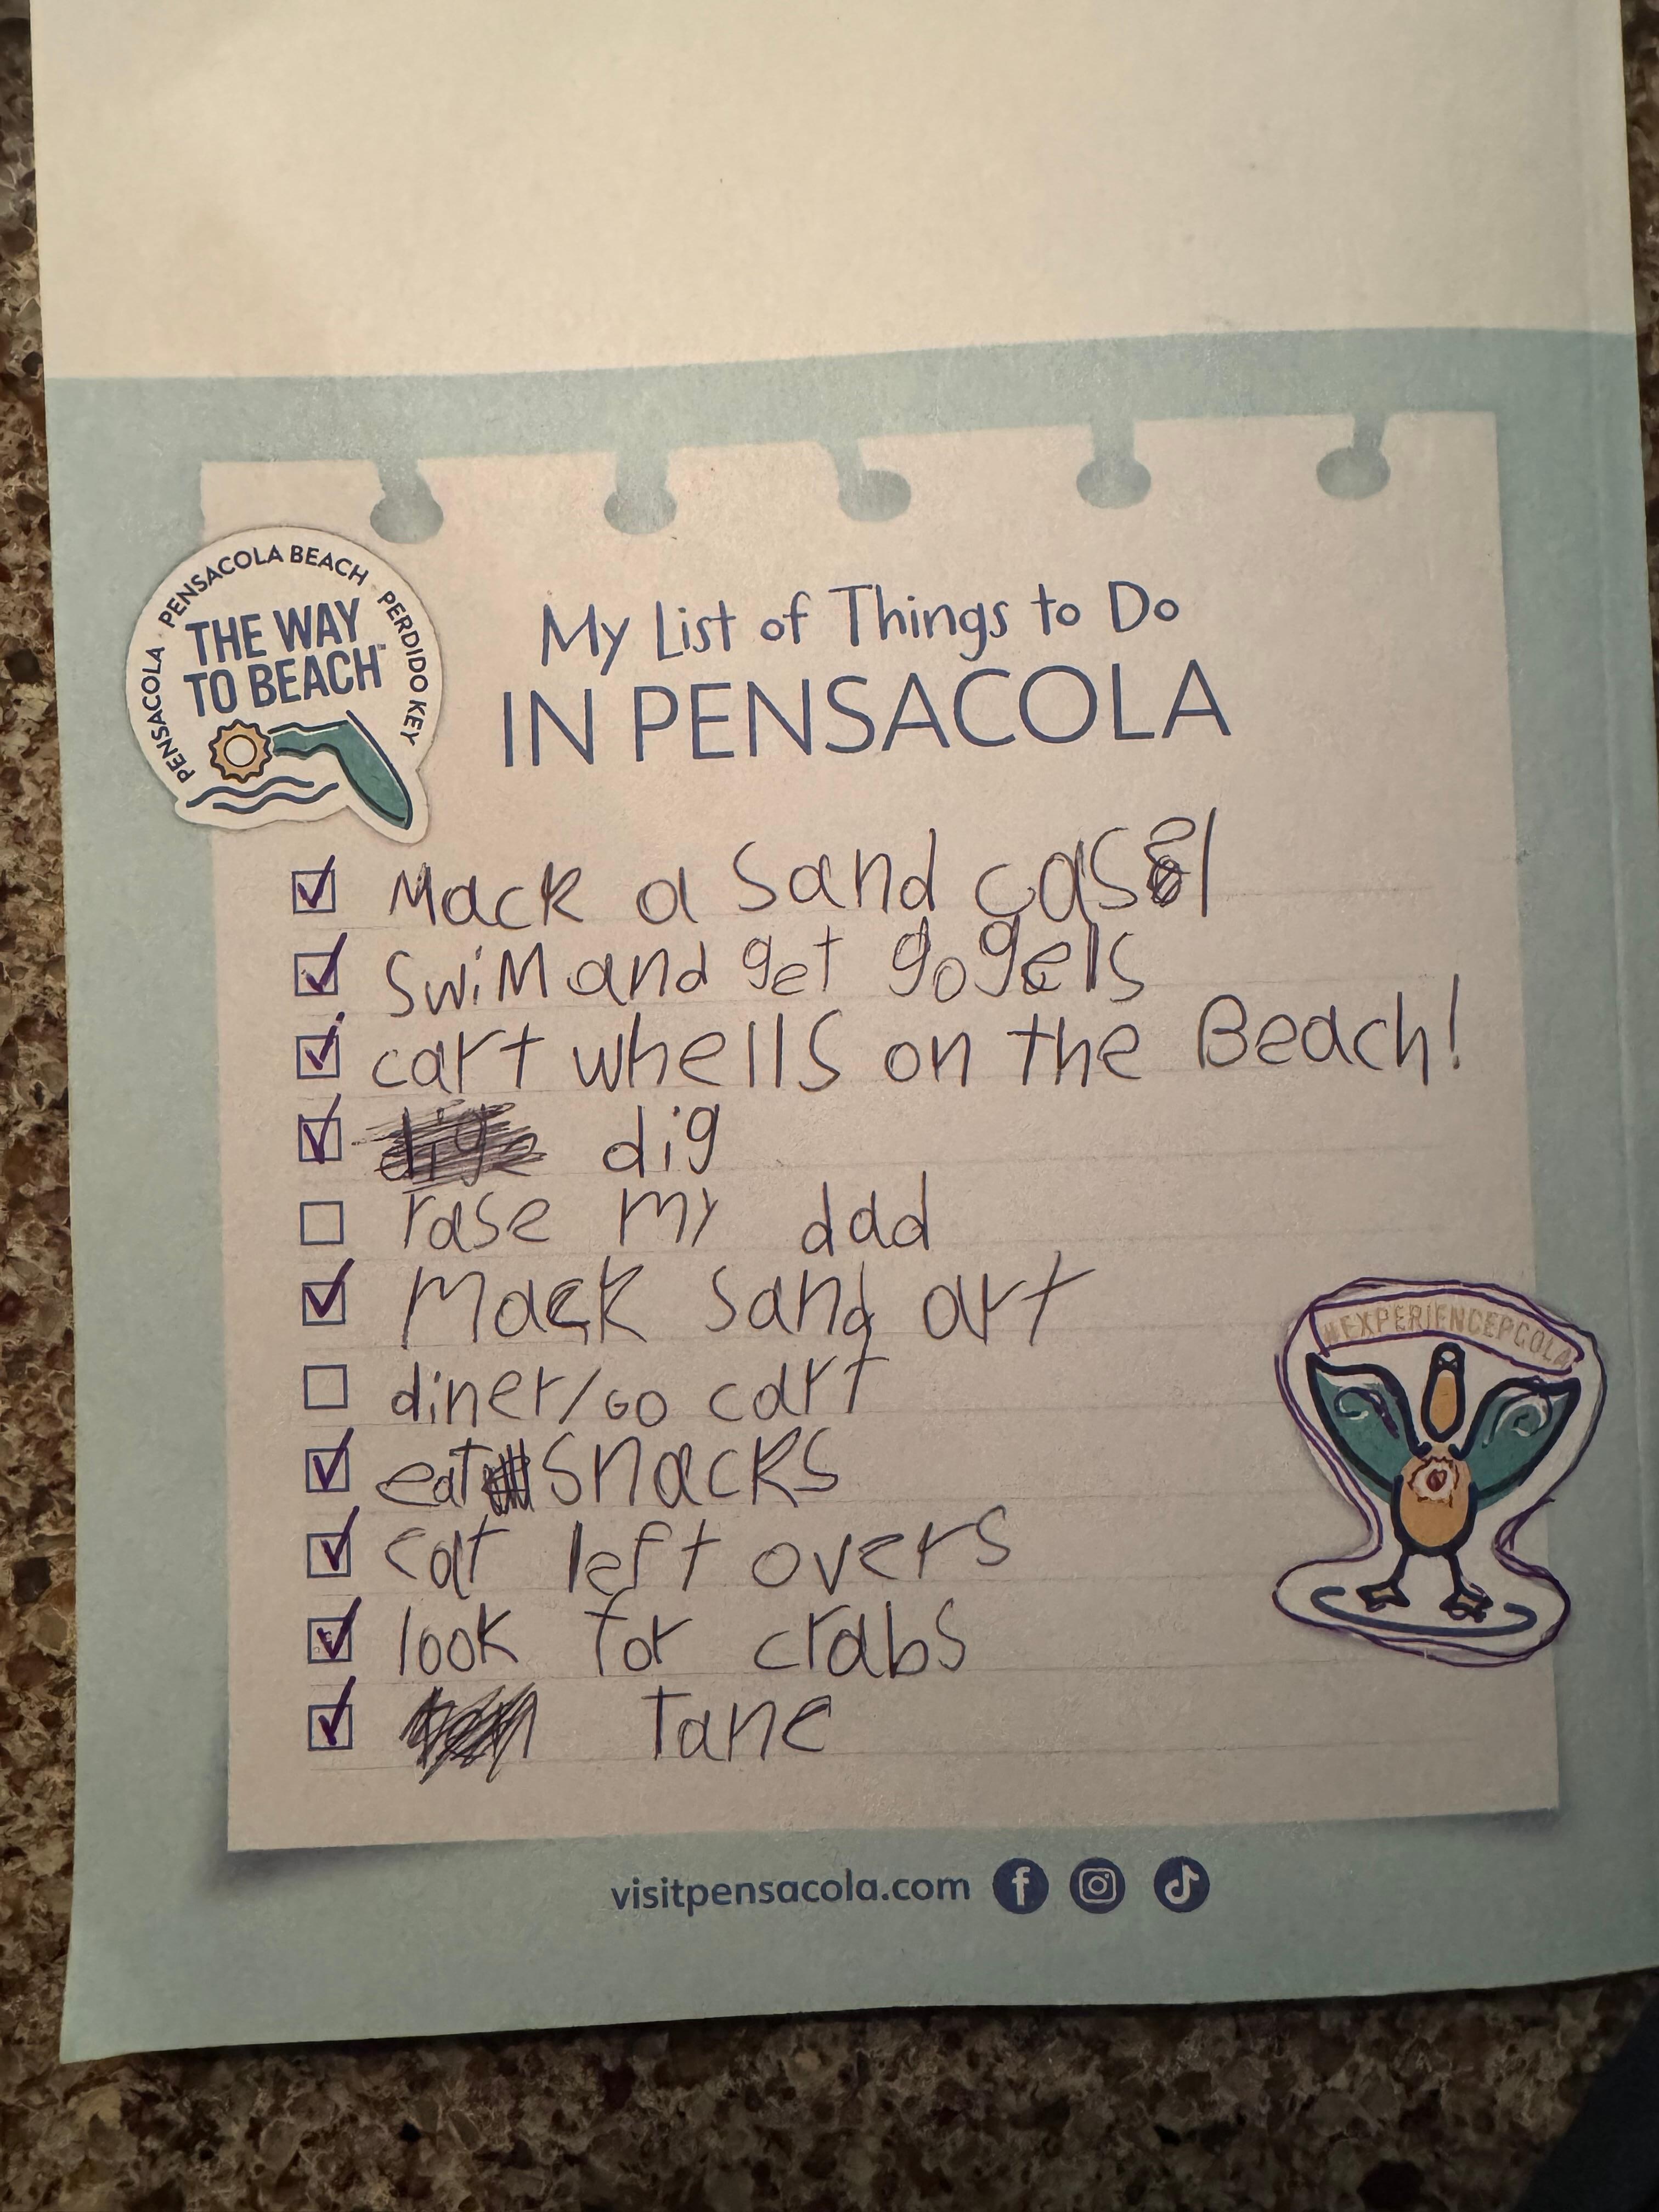 PENSACOLA · PENSACOLA BEACH · PERDIDO KEY
THE WAY
TO BEACH™
My List of Things to Do
IN PENSACOLA
Mack a sand casel
swiM and get gogels
cart whells on the Beach!
dig
rase my dad
Mack sand art
diner/Go cart
eat snacks
eat left overs
look for crabs
Tane
#EXPERIENCEPCOLA
visitpensacola.com